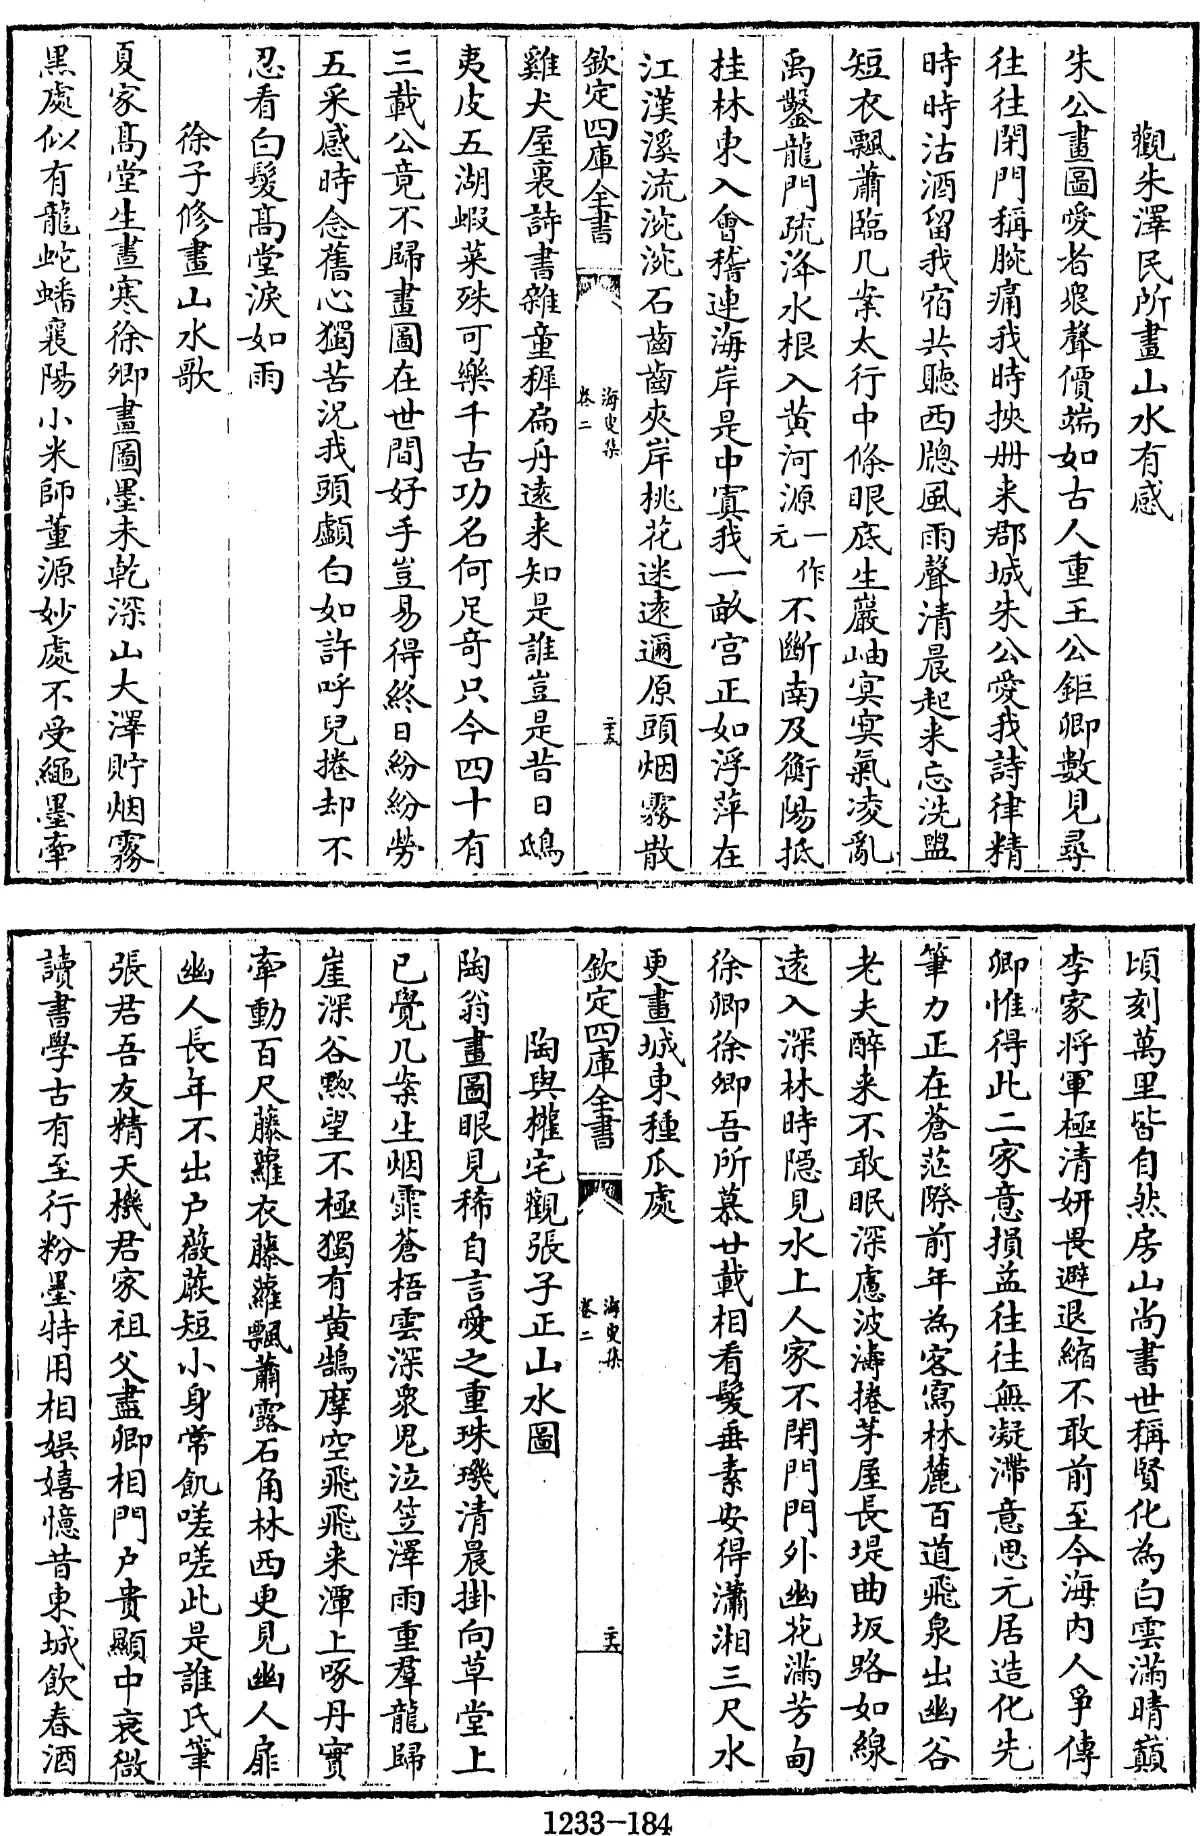 觀朱澤民所畫山水有感
朱公畫圖愛者衆聲價端如古人重王公鉅卿數見尋
往往閉門稱腕痛我時挾册来郡城朱公愛我詩律精
時時沽酒留我宿共聽西牕風雨聲清晨起来忘洗盥
短衣飄蕭臨几案太行中條眼底生巖岫寞寞氣凌亂
禹鑿龍門疏洚水根入黄河源一作元不斷南及衡陽抵
桂林東入會稽連海岸是中寘我一畝宮正如浮萍在
江漢溪流涴涴石齒齒夾岸桃花迷逺邇原頭烟霧散
欽定四庫全書
海叟集
卷二
二十五
雞犬屋裏詩書雜童穉扁舟逺来知是誰豈是昔日鴟
夷皮五湖蝦菜殊可樂千古功名何足奇只今四十有
三載公竟不歸畫圖在世間好手豈易得終日紛紛勞
五采感時念舊心獨苦況我頭顱白如許呼兒捲却不
忍看白髮髙堂淚如雨
徐子修畫山水歌
夏家髙堂生晝寒徐卿畫圖墨未乾深山大澤貯烟霧
黒處似有龍蛇蟠襄陽小米師董源妙處不受繩墨牽
頃刻萬里皆自然房山尚書世稱賢化為白雲滿晴巔
李家將軍極清妍畏避退縮不敢前至今海内人爭傳
卿惟得此二家意損益往往無凝滯意思元居造化先
筆力正在蒼茫際前年為客寫林麓百道飛泉出幽谷
老夫醉来不敢眠深慮波濤捲茅屋長堤曲坂路如線
逺入深林時隠見水上人家不閉門門外幽花滿芳甸
徐卿徐卿吾所慕廿載相看髮垂素安得瀟湘三尺水
更畫城東種瓜處
欽定四庫全書
海叟集
卷二
二十六
陶與權宅觀張子正山水圖
陶翁畫圖眼見稀自言愛之重珠璣清晨掛向草堂上
已覺几案生烟霏蒼梧雲深衆鬼泣笠澤雨重羣龍歸
崖深谷黝望不極獨有黄鵠摩空飛飛来潭上啄丹實
牽動百尺藤蘿衣藤蘿飄蕭露石角林西更見幽人扉
幽人長年不出户薇蕨短小身常飢嗟嗟此是誰氏筆
張君吾友精天機君家祖父盡卿相門户貴顯中衰微
讀書學古有至行粉墨特用相娯嬉憶昔東城飲春酒
1233-184